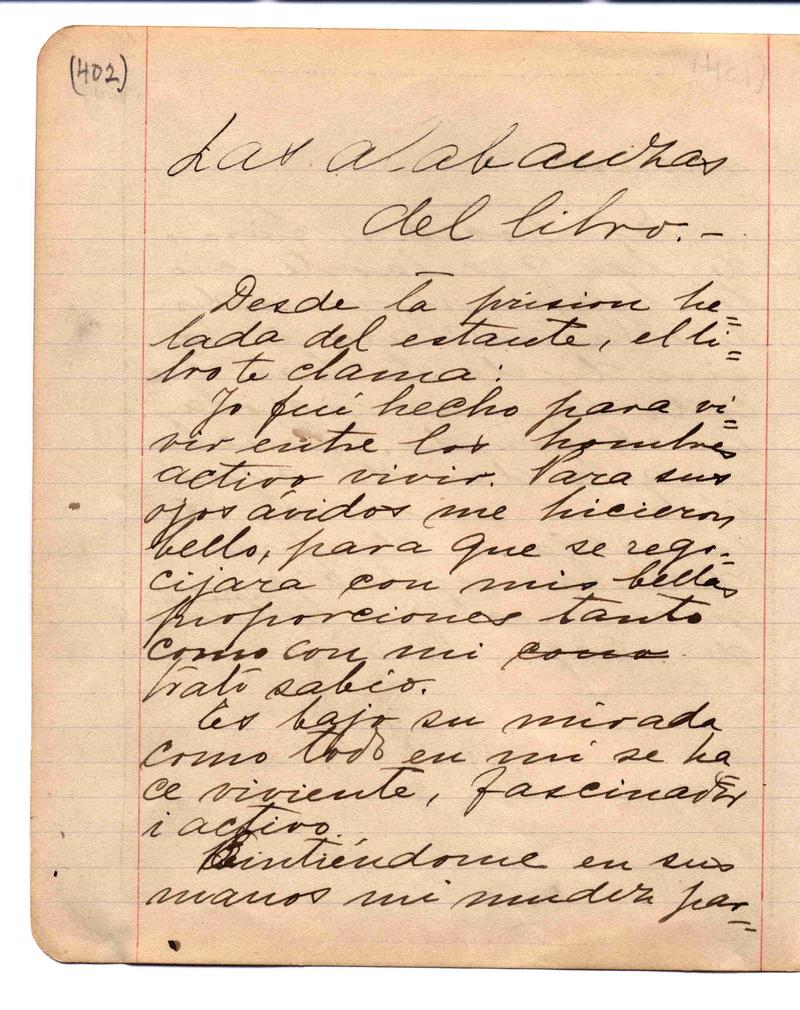 (402)
Las alabanzas
del libro.-
Desde la prision he=
lada del estante, el li=
bro te clama:
Yo fuí hecho para vi=
vir entre los hombres
activo vivir. Para sus
ojos ávidos me hicieron
bello, para que se rego-
cijara con mis bellas
proporciones tanto
como con mi como
trato sabio.
Es bajo su mirada
como todo en mí se ha
ce viviente, fascinador
i activo.
Sintiéndome en sus
manos mi mudez par=